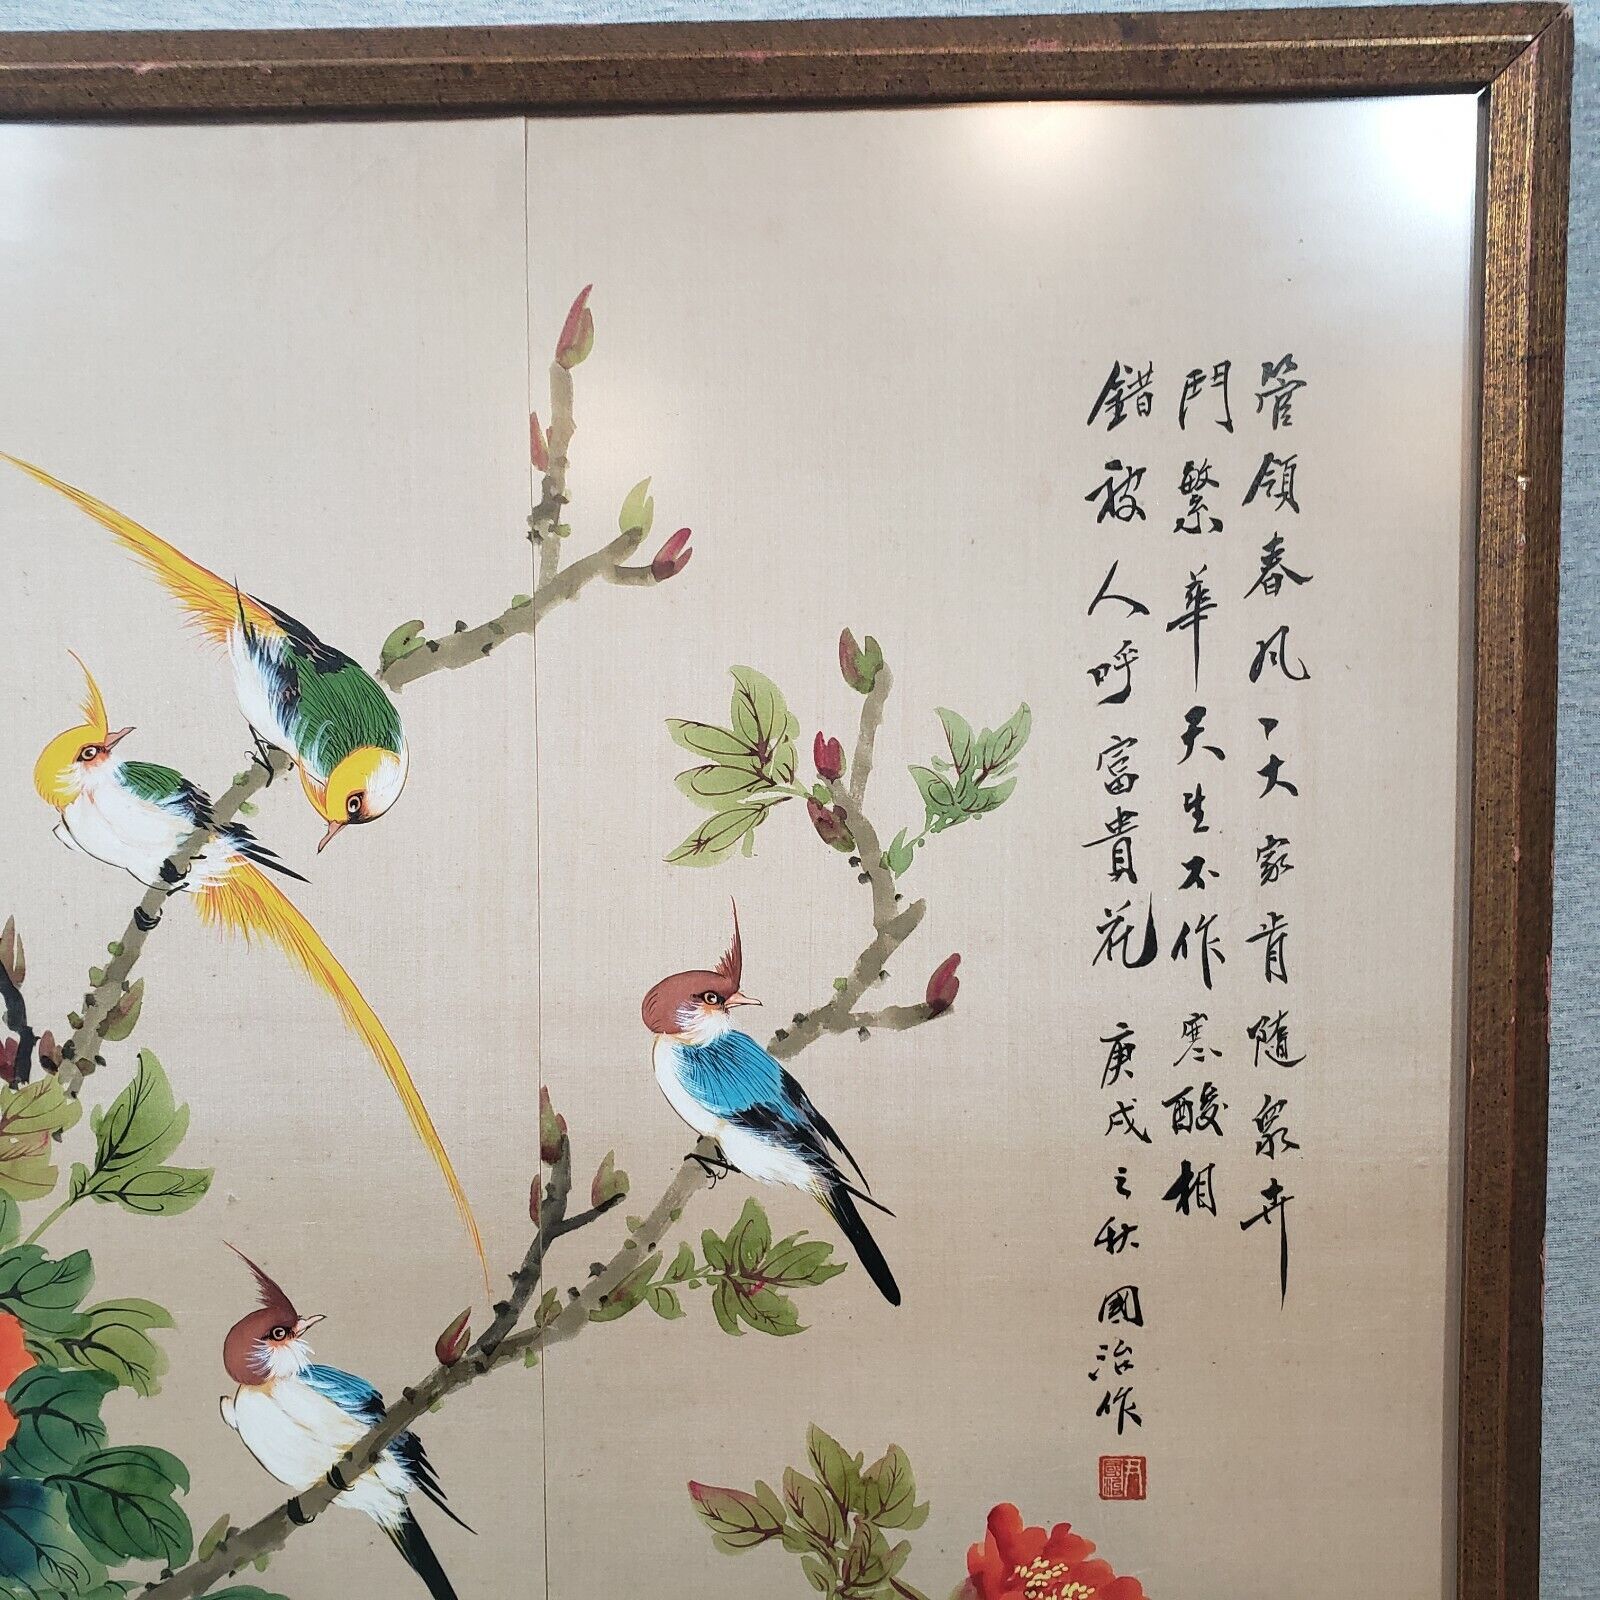 管領春風丶大家肯隨眾卉
鬥繁華天生不作寒酸相
錯被人呼富貴花 庚戌之秋 國治作